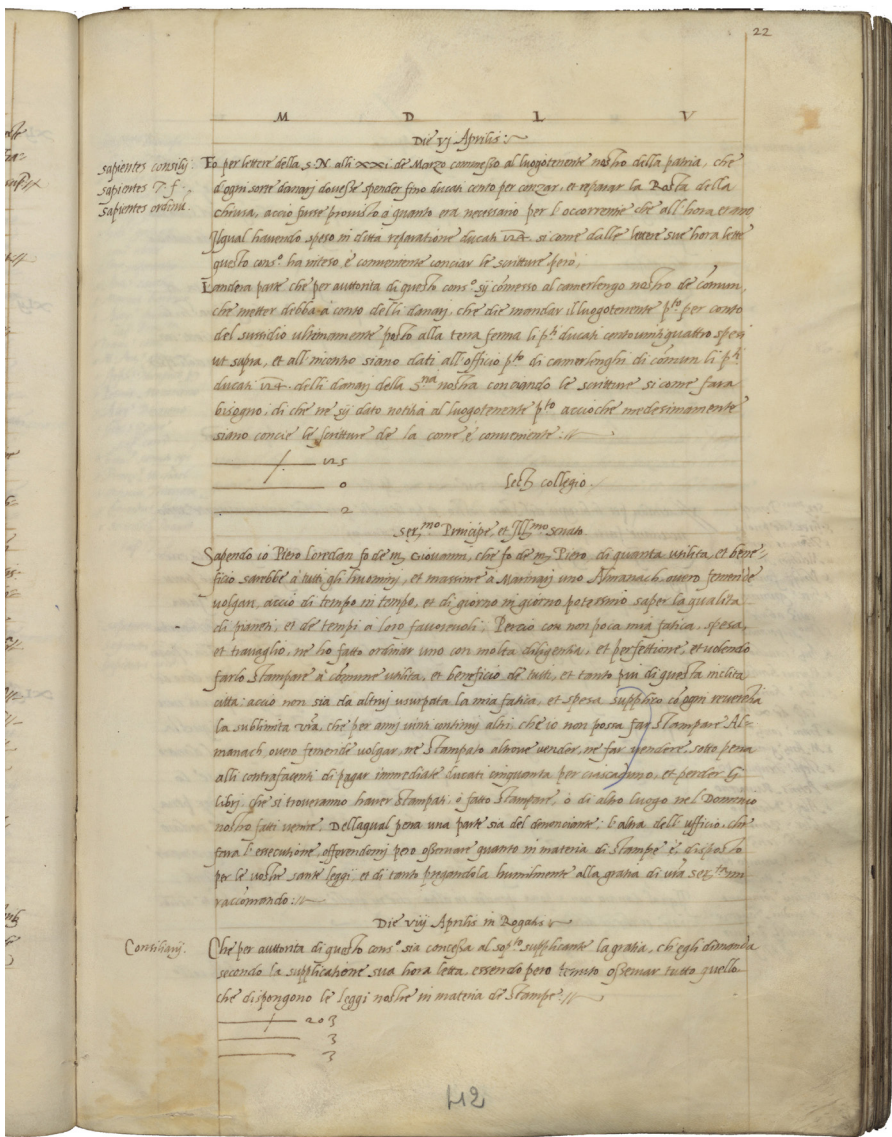 22
M D L V
Die vj Aprilis:
sapientes consilij.
sapientes T. f.
sapientes ordinu.
Fo per lettere della s. N. alli xxi de Marzo commesso al luogotenente nostro della patria, che
d'ogni sorte danarj dovesse spender fino ducati cento per conzar, et reparar la Rosta della
chiusa, acciò fusse provisto a quanto era necessario per l'occorrentie che all'hora erano
Ilqual havendo speso in ditta reparatione ducati 124. si come dalle lettere sue hora lette
questo cons.o ha inteso è conveniente conciar le scritture però,
Landera parte che per auttorità di questo cons.o sij cõmesso al camerlengo nostro de cõmun,
che metter debba à conto delli danarj, che die mandar il luogotenente p.to per conto
del sussidio ultimamente posto alla terra ferma li p.ti ducati centovintiquattro spesi
ut supra, et all'incontro siano dati all'officio p.to di camerlenghi di cõmun li p.ti
ducati 124. delli danarj della S.na nostra conciando le scritture si come fara
bisogno, di che ne sij dato notitia al luogotenente p.to accioche medesimamente
siano concie le scritture de la come è conveniente://
125
0
2
Lecta collegio.
Ser.mo Principe, et Ill.mo Senato
Sapendo io Piero Loredan fo de m. Giovanni, che fo de m. Piero di quanta utilità, et bene-
ficio sarebbe à tutti gli huominj, et massime à Marinarj uno Almanach, overo femende
volgari, acciò di tempo in tempo, et di giorno in giorno potessino saper la qualità
di pianeti, et de tempi a loro favorevoli; Perciò con non poca mia fatica, spesa,
et travaglio, ne ho fatto ordinar uno con molta diligentia, et perfettione, et volendo
farlo stampare à cõmune utilità, et beneficio de tutti, et tanto più di questa inclita
città: acciò non sia da altruj usurpata la mia fatica, et spesa supplico cõ ogni reverentia
la sublimità vra, che per annj vinti continuj altri, che io non possa far stampare Al-
manach, overo femende volgar, ne stampato altrove vender, ne far vendere sotto pena
alli contrafacenti di pagar immediate ducati cinquanta per ciascaduno, et perder li
librj che si troveranno haver stampati, ò fatto stampare, ò di altro luogo nel Dominio
nostro fatti venire. Dellaqual pena una parte sia del denonciante: l'altra dell'ufficio, che
farà l'essecutione, offerendomj però osservare quanto in materia di stampe è disposto
per le vostre sante leggi, et di tanto pregandola humilmente alla gratia di vra ser.tà mi
raccomando://
Die viij Aprilis in Rogatis
Consiliarij.
Che per auttorità di questo cons.o sia concessa al sop.to supplicante la gratia, ch'egli dimanda
secondo la supplicatione sua hora letta, essendo però tenuto osservar tutto quello
che dispongono le leggi nostre in materia de stampe://
203
3
3
42